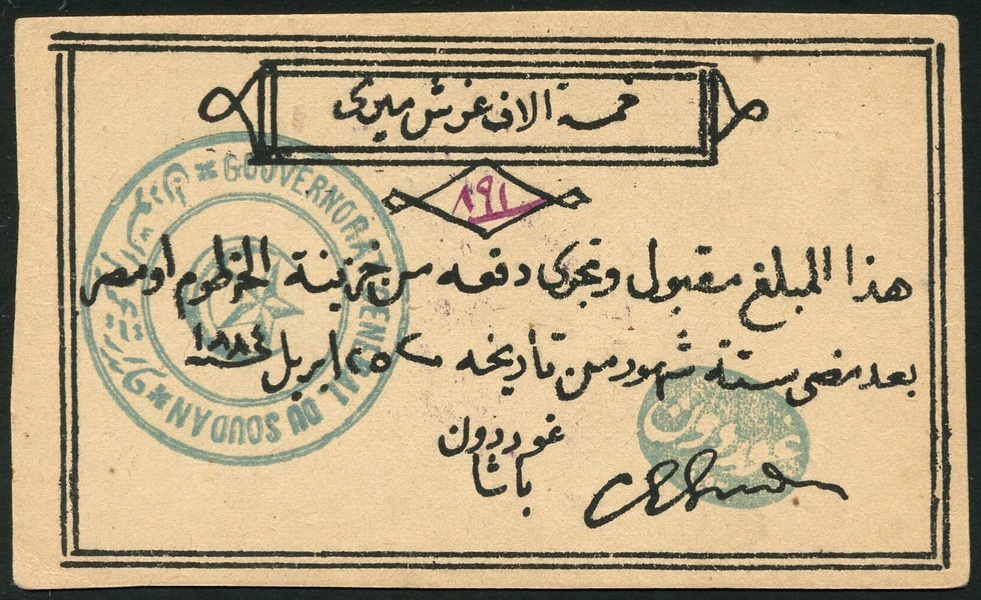 خمسة الاف غرش ميرى
٨٩١
هذا المبلغ مقبول وتجرى دفعه من خزينة الخرطوم او مصر
بعد مضى ستة شهور من تاريخه ٢٥ ابريل ١٨٨٤
غوردون
باشا
GOUVERNORAT GENERAL DU SOUDAN
غوردون